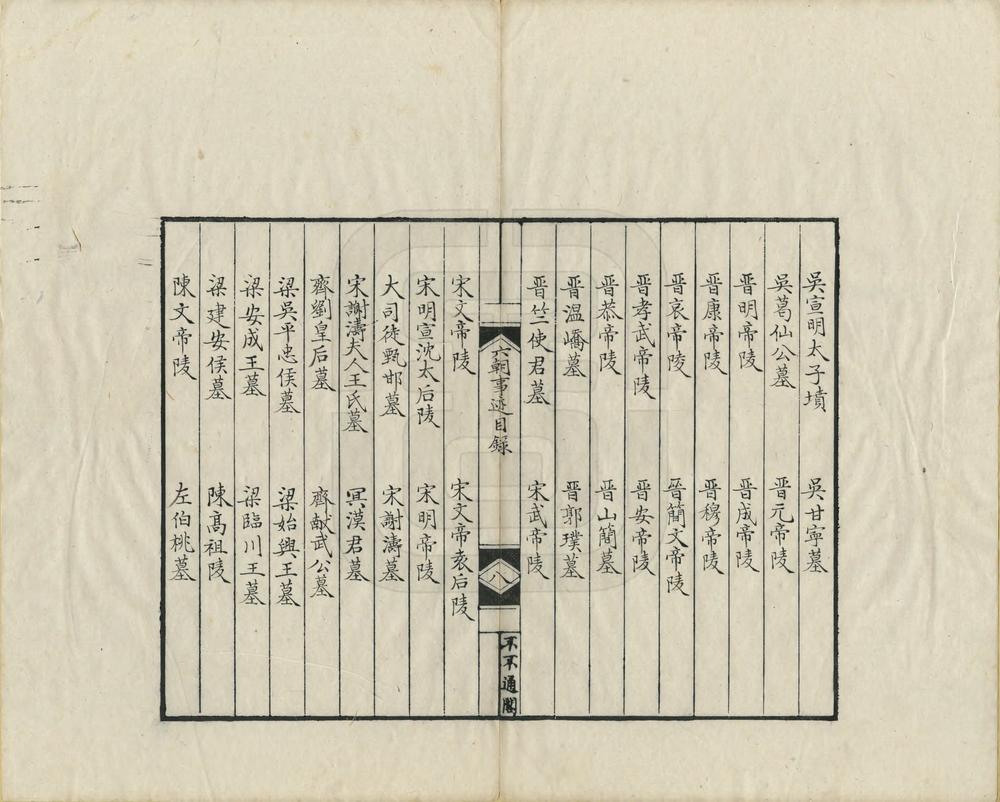 吳宣明太子墳 吳甘寧墓
吳葛仙公墓 晋元帝陵
晋明帝陵 晋成帝陵
晋康帝陵 晋穆帝陵
晋哀帝陵 晉簡文帝陵
晋孝武帝陵 晋安帝陵
晋恭帝陵 晋山簡墓
晋溫嶠墓 晋郭璞墓
晋竺使君墓 宋武帝陵
六朝事迹目録
八
不不通閣
宋文帝陵 宋文帝袁后陵
宋明宣沈太后陵 宋明帝陵
大司徒甄邯墓 宋謝濤墓
宋謝濤夫人王氏墓 冥漠君墓
齊劉皇后墓 齊献武公墓
梁吳平忠侯墓 梁始興王墓
梁安成王墓 梁臨川王墓
梁建安侯墓 陳高祖陵
陳文帝陵 左伯桃墓